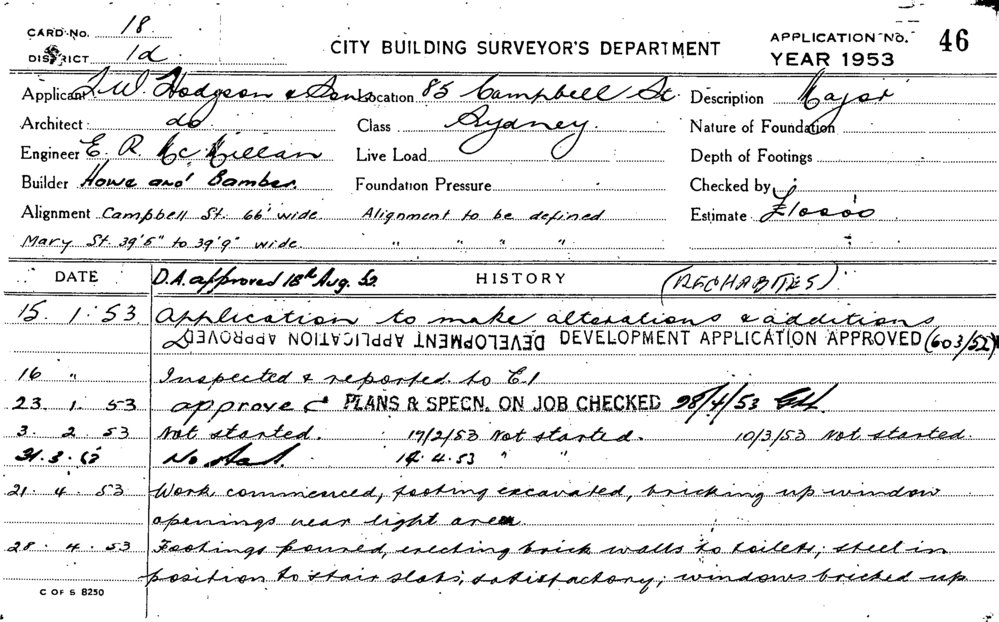 CARD No. 18 CITY BUILDING SURVEYOR'S DEPARTMENT APPLICATION No. 46
DISTRICT 1d YEAR 1953
Applicant F. W. Hodgson & Sons Location 85 Campbell St. Description Major
Architect do Class Sydney. Nature of Foundation
Engineer E. R. McMillan Live Load Depth of Footings
Builder Howe and Bamber. Foundation Pressure Checked by
Alignment Campbell St. 66' wide Alignment to be defined Estimate £10000
Mary St. 39'6" to 39'9" wide. " " " "
DATE D.A. approved 18th Aug. 52. HISTORY (RECHABITES)
15. 1. 53 Application to make alterations & additions
DEVELOPMENT APPLICATION APPROVED DEVELOPMENT APPLICATION APPROVED (603/52)
16 " Inspected & reported to C.I
23. 1. 53 approve PLANS & SPECN. ON JOB CHECKED 28/4/53
3. 2. 53 Not started. 17/2/53 Not started. 10/3/53 Not started.
31. 3. 53 No start. 14.4.53 " "
21. 4. 53 Work commenced, footing excavated, bricking up window
openings near light area.
28. 4. 53 Footings poured, erecting brick walls to toilets; steel in
position to stair slabs; satisfactory; windows bricked up
C OF S 8250